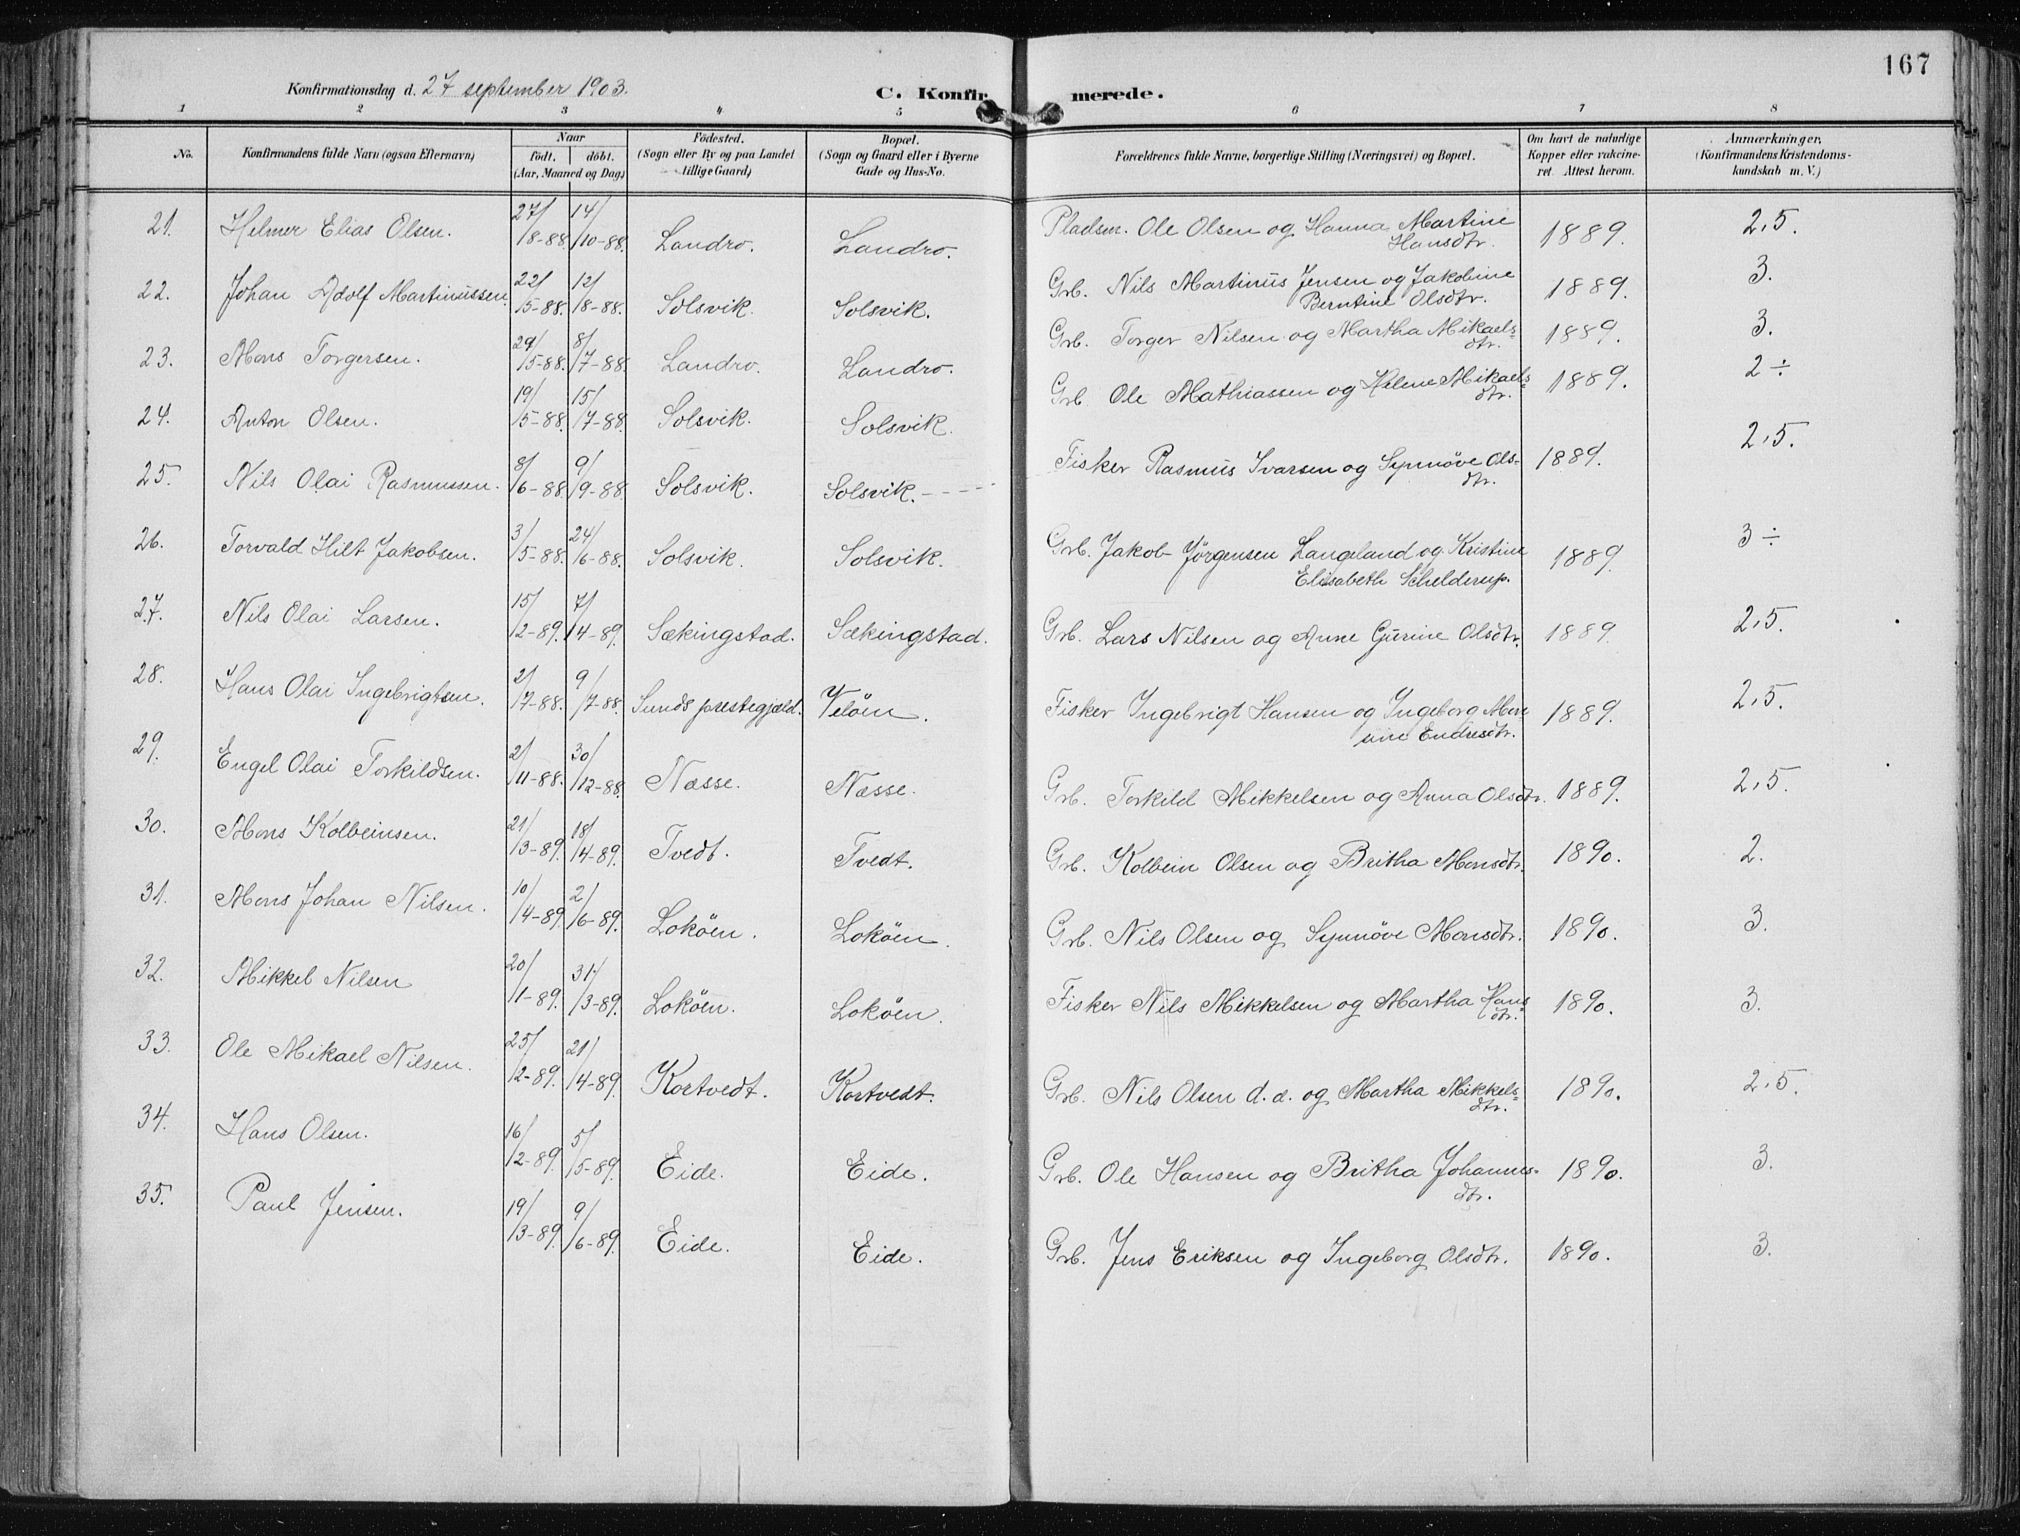 167
Konfirmationsdag d. 27 september 1903.
C. Konfir
merede.
1 2 3 4 5 6 7 8
No.
Konfirmandens fulde Navn (ogsaa Efternavn)
Naar
födt. döbt.
(Aar, Maaned og Dag)
Födested.
(Sogn eller By og paa Landet
tillige Gaard)
Bopæl.
(Sogn og Gaard eller i Byerne
Gade og Hus-No.
Forældrenes fulde Navne, borgerlige Stilling (Næringsvei) og Bopæl.
Om havt de naturlige
Kopper eller vakcine-
ret. Attest herom.
Anmærkninger.
(Konfirmandens Kristendoms-
kundskab m. V.)
21. Helmer Elias Olsen. 27/8-88. 14/10-88. Landro. Landro. Pladsm. Ole Olsen og Hanna Martine Hansdtr. 1889. 2,5.
22. Johan Adolf Martinussen. 22/5-88. 12/8-88. Solsvik. Solsvik. Grb. Nils Martinus Jensen og Jakobine Berntine Olsdtr. 1889. 3.
23. Mons Torgersen. 29/5-88. 8/7-88. Landro. Landro. Grb. Torger Nilsen og Martha Mikaels= dtr. 1889. 3.
24. Anton Olsen. 19/5-88. 15/7-88. Solsvik. Solsvik. Grb. Ole Mathiassen og Helene Mikaels= dtr. 1889. 2 ÷
25. Nils Olai Rasmussen. 8/6-88. 9/9-88. Solsvik. Solsvik. Fisker Rasmus Ivarsen og Synnöve Ols- dtr. 1889. 2,5.
26. Torvald Hilt Jakobsen. 3/5-88. 24/6-88. Solsvik. Solsvik. Grb. Jakob Jörgensen Langeland og Kristine Elisabeth Schelderup. 1889. 3 ÷
27. Nils Olai Larsen. 15/2-89. 7/4-89. Sækingstad. Sækingstad. Grb. Lars Nilsen og Anne Gurine Olsdtr. 1889. 2,5.
28. Hans Olai Ingebrigtsen. 2/7-88. 9/7-88. Sunds prestegjæld. Velöen. Fisker Ingebrigt Hansen og Ingeborg Mon sine Endresdtr. 1889. 2,5.
29. Engel Olai Torkildsen. 2/11-88. 30/12-88. Næsse. Næsse. Grb. Torkild Mikkelsen og Anna Olsdtr. 1889. 2,5.
30. Mons Kolbeinsen. 21/3-89. 18/4-89. Tvedt. Tvedt. Grb. Kolbein Olsen og Britha Monsdtr. 1890. 2.
31. Mons Johan Nilsen. 10/4-89. 2/6-89. Loköen. Loköen. Grb. Nils Olsen og Synnöve Monsdtr. 1890. 3.
32. Mikkel Nilsen 20/1-89. 31/3-89. Loköen. Loköen. Fisker Nils Mikkelsen og Martha Hans dtr. 1890. 3.
33. Ole Mikael Nilsen. 25/2-89. 21/4-89. Kortvedt. Kortvedt. Grb. Nils Olsen d. d. og Martha Mikkels= dtr. 1890. 2,5.
34. Hans Olsen. 16/2-89. 5/5-89. Eide. Eide. Grb. Ole Hansen og Britha Johannes- dtr. 1890. 3.
35. Paul Jensen. 19/3-89. 9/6-89. Eide. Eide. Grb. Jens Eriksen og Ingeborg Olsdtr. 1890. 3.